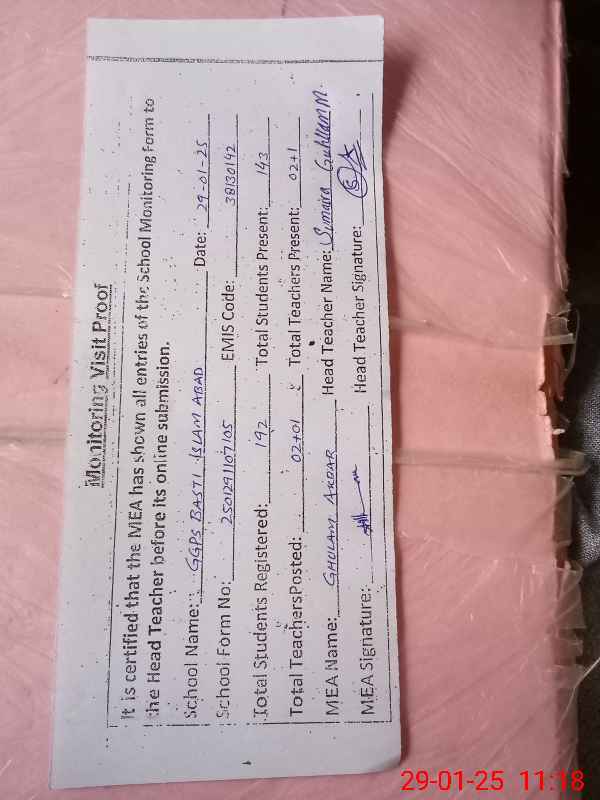 Monitoring Visit Proof
It is certified that the MEA has shown all entries of the School Monitoring Form to
the Head Teacher before its online submission.
School Name: GGPS BASTI ISLAM ABAD Date: 29-01-25
School Form No: 2501291107105 EMIS Code: 38130142
Total Students Registered: 192 Total Students Present: 143
Total TeachersPosted: 02+01 Total Teachers Present: 02+1
MEA Name: GHULAM AKBAR Head Teacher Name: Sumaira M.
MEA Signature: Head Teacher Signature:
29-01-25 11:18